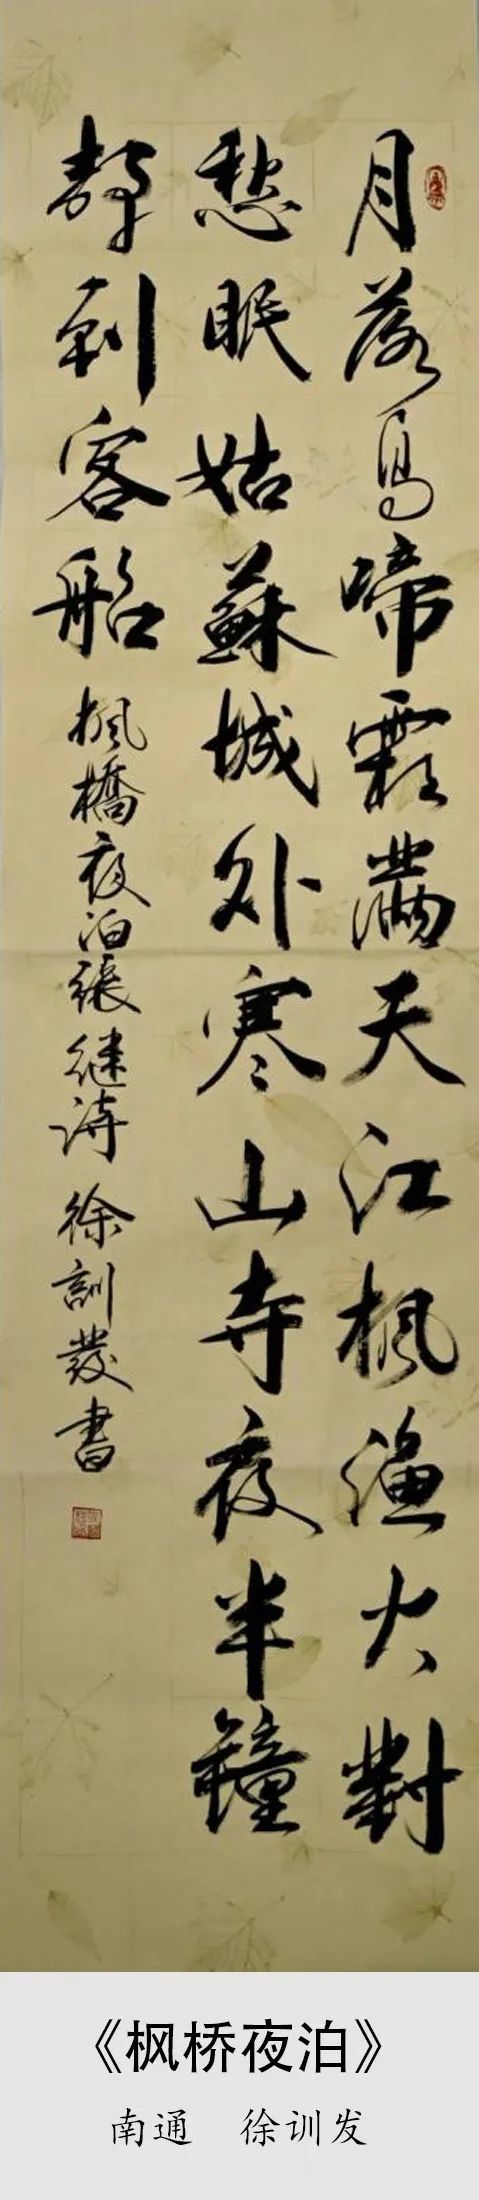 月落烏啼霜滿天江枫漁火對
愁眠姑蘇城外寒山寺夜半鐘
聲到客船
枫橋夜泊張継詩 徐訓發書
《枫桥夜泊》
南通 徐训发